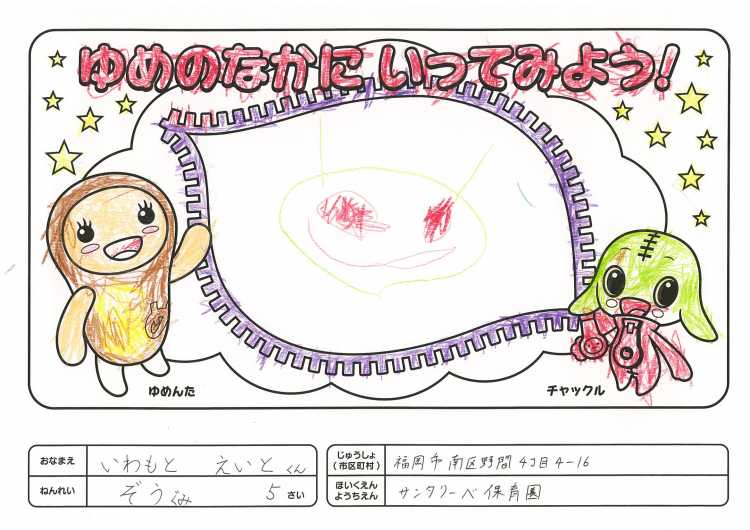 ゆめのなかに いってみよう!
ゆめんた
チャックル
おなまえ いわもと えいと くん
ねんれい ぞうぐみ 5 さい
じゅうしょ
(市区町村) 福岡市南区野間4丁目4-16
ほいくえん
ようちえん サンタリーベ保育園